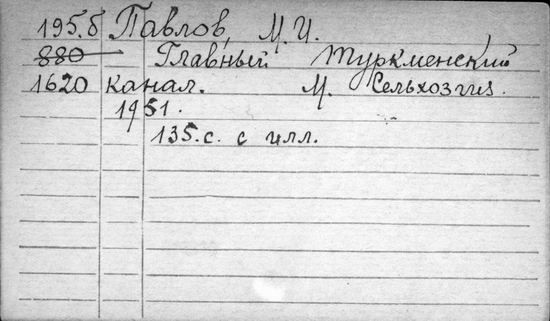 195.б Павлов, М.И.
880 Главный Туркменский
1620 канал. М. Сельхозгиз.
1951.
135.с. с илл.